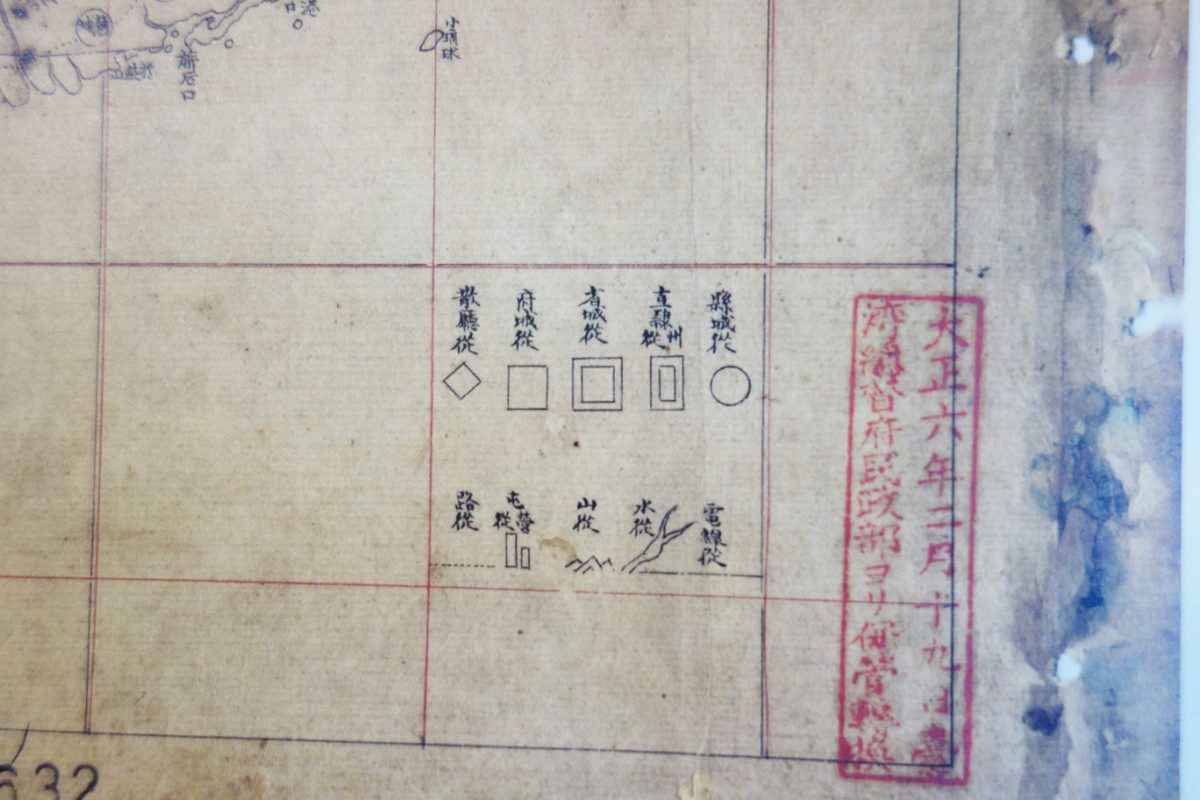 港口
小琉球
新后口
縣城從
直隸州從
省城從
府城從
散廳從
電線從
水從
山從
屯營從
路從
大正六年二月十九日臺
湾総督府民政部ヨリ保管轉換
632